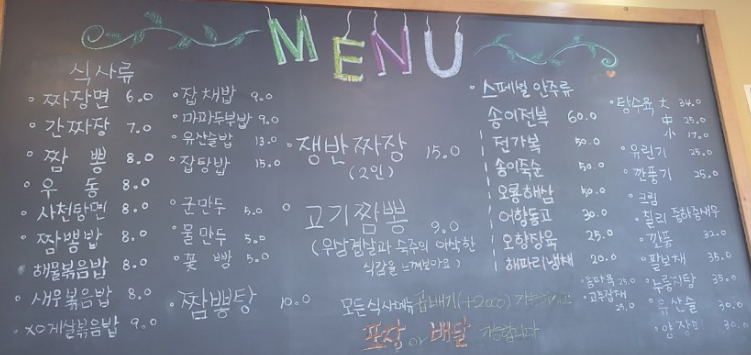 MENU
식사류
짜장면 6.0
간짜장 7.0
짬뽕 8.0
우동 8.0
사천탕면 8.0
짬뽕밥 8.0
해물볶음밥 8.0
새우볶음밥 8.0
XO게살볶음밥 9.0
잡채밥 9.0
마파두부밥 9.0
유산슬밥 13.0
잡탕밥 15.0
군만두 5.0
물만두 5.0
꽃빵 5.0
짬뽕탕 10.0
쟁반짜장 15.0
(2인)
고기짬뽕 9.0
(우삼겹살과 숙주의 아삭한
식감을 느껴보아요)
모든식사메뉴 곱빼기(+2000)
포장 or 배달 가능합니다
스페셜 안주류
송이전복 60.0
전가복 50.0
송이죽순 50.0
오룡해삼 50.0
어향동고 30.0
오향장육 25.0
해파리냉채 20.0
탕수육 大 34.0
中 25.0
小 17.0
유린기 25.0
깐풍기 25.0
크림
칠리
깐풍 32.0
팔보채 35.0
누룽지탕 35.0
유산슬 30.0
양장피 30.0
25.0
고추잡채
25.0